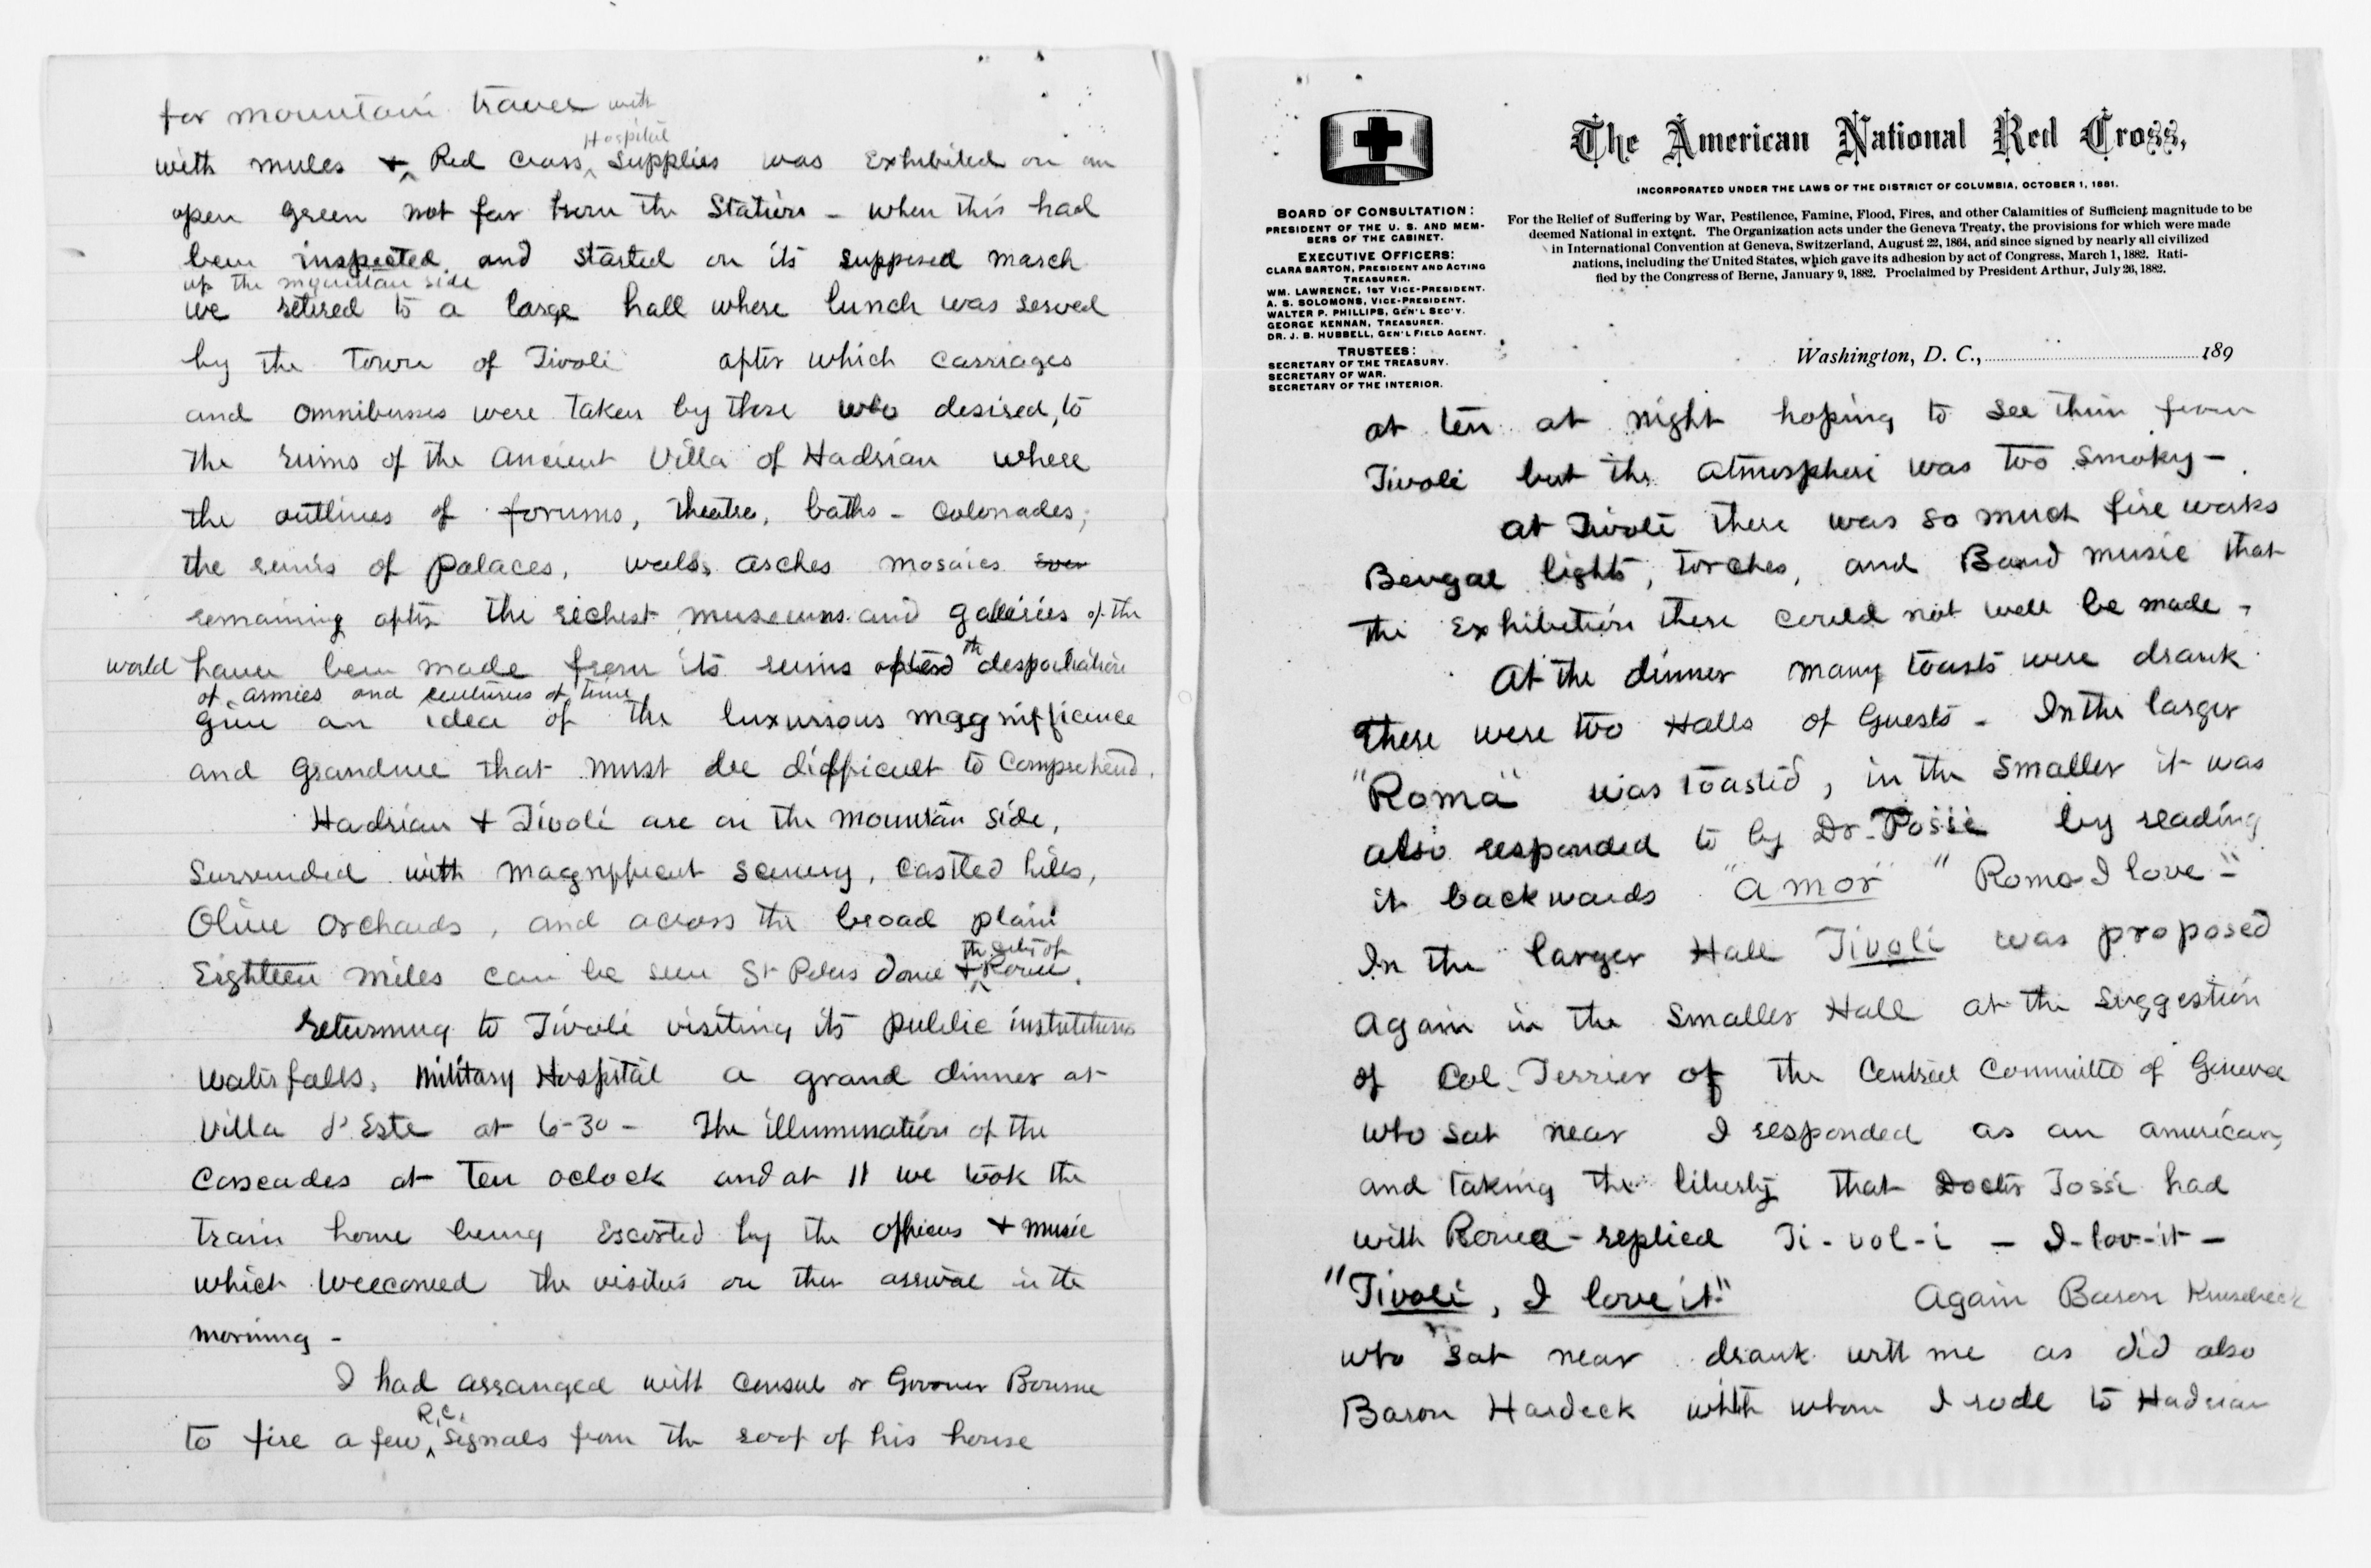 for mountain travel with
Hospital
with mules & Red Cross supplies was exhibited on an
open green not far from the Station - when this had
been inspected and started on its supposed march
up the mountain side
we retired to a large hall where lunch was served
by the Town of Tivoli after which carriages
and omnibusses were taken by those who desired, to
the ruins of the ancient Villa of Hadrian where
the outlines of forums, theatre, baths - colonades,
the ruins of palaces, walls, arches mosaics even
remaining after the richest museums and galleries of the
world have been made from its ruins after the despoilation
of armies and centuries of time
give an idea of the luxurious maggnifficence
and grandure that must be difficult to comprehend.
Hadrian & Tivoli are on the mountain side,
surrounded with magnifficent scenery, castled hills,
Olive orchards, and across the broad plain
the City of
Eighteen miles can be seen St Peters dome & Rome.
returning to Tivoli visiting its public institutions
waterfalls, military Hospital a grand dinner at
Villa d'Este at 6-30 - The illumination of the
Cascades at ten oclock and at 11 we took the
train home being escorted by the officers & music
which welcomed the visitors on their arrival in the
morning -
I had arranged with consul or Governer Bourne
R.C.
to fire a few signals from the roof of his house
The American National Red Cross,
INCORPORATED UNDER THE LAWS OF THE DISTRICT OF COLUMBIA, OCTOBER 1, 1881.
For the Relief of Suffering by War, Pestilence, Famine, Flood, Fires, and other Calamities of Sufficient magnitude to be
deemed National in extent. The Organization acts under the Geneva Treaty, the provisions for which were made
in International Convention at Geneva, Switzerland, August 22, 1864, and since signed by nearly all civilized
nations, including the United States, which gave its adhesion by act of Congress, March 1, 1882. Rati-
fied by the Congress of Berne, January 9, 1882. Proclaimed by President Arthur, July 26, 1882.
BOARD OF CONSULTATION:
PRESIDENT OF THE U. S. AND MEM-
BERS OF THE CABINET.
EXECUTIVE OFFICERS:
CLARA BARTON, PRESIDENT AND ACTING
TREASURER.
WM. LAWRENCE, 1ST VICE-PRESIDENT.
A. S. SOLOMONS, VICE-PRESIDENT.
WALTER P. PHILLIPS, GEN'L SEC'Y.
GEORGE KENNAN, TREASURER.
DR. J. B. HUBBELL, GEN'L FIELD AGENT.
TRUSTEES:
SECRETARY OF THE TREASURY.
SECRETARY OF WAR.
SECRETARY OF THE INTERIOR.
Washington, D. C., 189
at ten at night hoping to see them from
Tivoli but the atmosphere was too smoky -
at Tivoli there was so much fire works
Bengal lights, torches, and Band music that
the exhibition there could not well be made -
At the dinner many toasts were drank
there were two Halls of Guests - In the larger
"Roma" was toasted, in the smaller it was
also responded to by Dr. Tossi by reading
it backwards "amor" "Roma I love"
In the larger Hall Tivoli was proposed
again in the smaller Hall at the suggestion
of Col. Ferrier of the Central Committe of Geneva
who sat near I responded as an american,
and taking the liberty that Doctor Tossi had
with Roma - replied Ti-vol-i - I-lov-it -
"Tivoli, I love it." Again Baron
who sat near drank with me as did also
Baron Hardeck with whom I rode to Hadrian